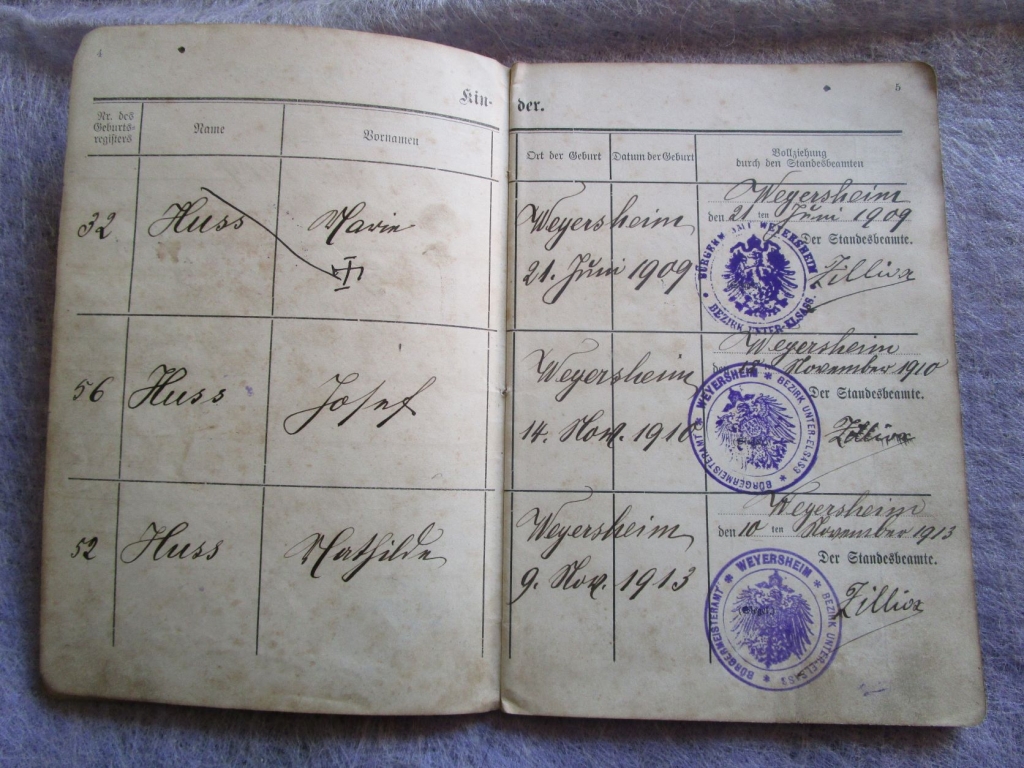 4
Kin-
Nr. des
Geburts-
registers
Name
Vornamen
32 Huss Marie
56 Huss Josef
52 Huss Mathilde
5
der.
Ort der Geburt Datum der Geburt Vollziehung
durch den Standesbeamten
Weyersheim
Weyersheim
den 21 ten Juni 1909
Der Standesbeamte.
21. Juni 1909
Zilliox
BÜRGERM AMT WEYERSHEIM
BEZIRK UNTER-ELSASS.
Weyersheim
Weyersheim
November 1910
Der Standesbeamte.
14. Nov. 1910
Zilliox
BÜRGERMEISTERAMT * WEYERSHEIM * BEZIRK UNTER-ELSASS *
Weyersheim
Weyersheim
den 10 ten November 1913
Der Standesbeamte.
9. Nov. 1913
Zilliox
BÜRGERMEISTERAMT * WEYERSHEIM * BEZIRK UNTER-ELSASS *